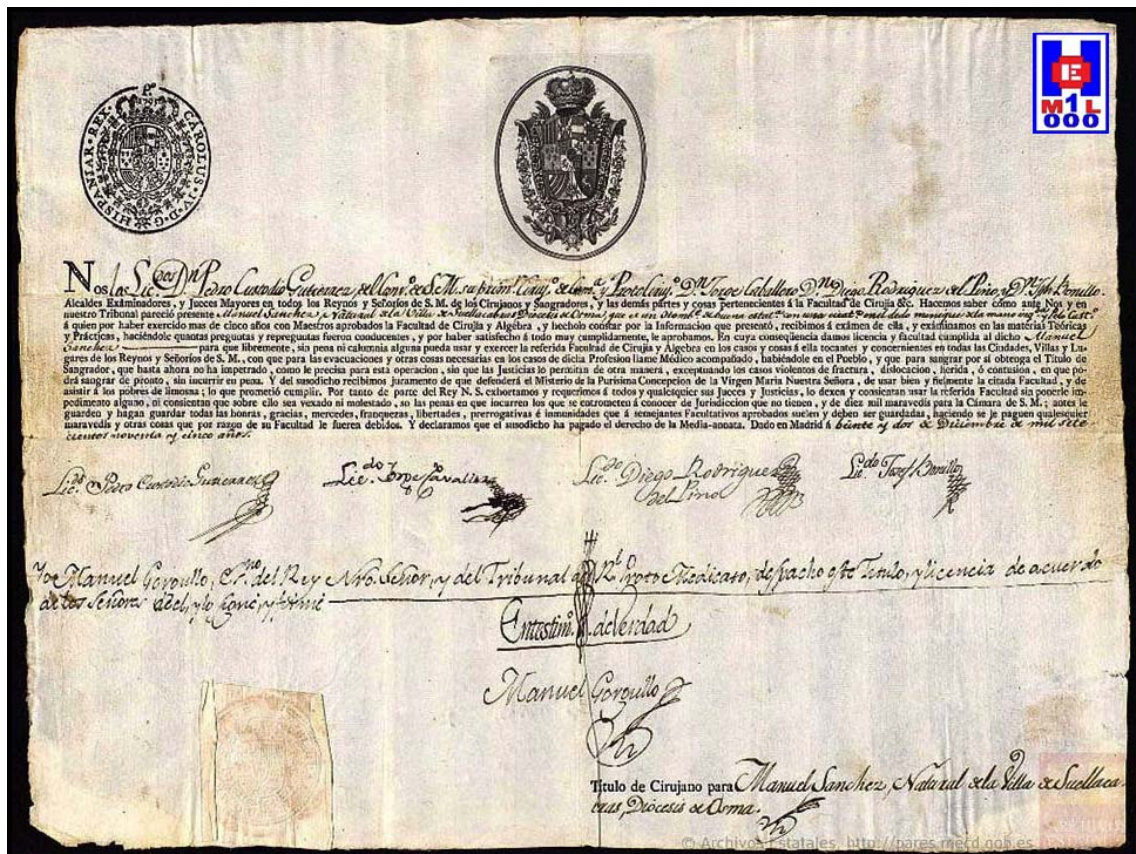 HISPANIAR·REX· CAROLUS·IV·D·G·
P.º
1795
H
E
M 1 L
000
Nos los Lic.dos Dn. Pedro Custodio Gutierrez, del Cons.º de S.M. su prim.r Ciruj.º de Cam.ª y Protociruj.º Dn. Jorge Caballero Dn. Diego Rodriguez del Pino, y Dn. Jph. Bonillo.
Alcaldes Exâminadores, y Jueces Mayores en todos los Reynos y Señoríos de S. M. de los Cirujanos y Sangradores, y las demas partes y cosas pertenecientes á la Facultad de Cirujía &c. Hacemos saber cómo ante Nos y en
nuestro Tribunal pareció presente Manuel Sanchez, Natural de la Villa de Suellacabras Diocesis de Osma, que es un Hombre de buena estat.ª con una mano izq.da y Pelo Cast.º
á quien por haber exercido mas de cinco años con Maestros aprobados la Facultad de Cirujía y Algebra, y hecholo constar por la Informacion que presentó, recibimos á exâmen de ella, y exâminamos en las matérias Teóricas
y Prácticas, haciéndole quantas preguntas y repreguntas fueron conducentes, y por haber satisfecho á todo muy cumplidamente, le aprobamos. En cuya conseqüencia damos licencia y facultad cumplida al dicho Manuel
Sanchez para que libremente, sin pena ni calomnia alguna pueda usar y exercer la referida Facultad de Cirujía y Algebra en los casos y cosas á ella tocantes y concernientes en todas las Ciudades, Villas y Lu-
gares de los Reynos y Señoríos de S. M., con que para las evacuaciones y otras cosas necesarias en los casos de dicha Profesion llame Médico acompañado, habiéndole en el Pueblo, y que para sangrar por sí obtenga el Título de
Sangrador, que hasta ahora no ha impetrado, como le precisa para esta operacion, sin que las Justicias lo permitan de otra manera, exceptuando los casos violentos de fractura, dislocacion, herida, ó contusion, en que po-
drá sangrar de pronto, sin incurrir en pena. Y del susodicho recibimos juramento de que defenderá el Misterio de la Purísima Concepcion de la Vírgen María Nuestra Señora, de usar bien y fielmente la citada Facultad, y de
asistir á los pobres de limosna; lo que prometió cumplir. Por tanto de parte del Rey N. S. exhortamos y requerimos á todos y qualesquier sus Jueces y Justicias, lo dexen y consientan usar la referida Facultad sin ponerle im-
pedimento alguno, ni consientan que sobre ello sea vexado ni molestado, so las penas en que incurren los que se entrometen á conocer de Jurisdiccion que no tienen, y de diez mil maravedís para la Cámara de S. M.; antes le
guarden y hagan guardar todas las honras, gracias, mercedes, franquezas, libertades, prerrogativas é inmunidades que á semejantes Facultativos aprobados suelen y deben ser guardadas, haciendo se le paguen qualesquier
maravedís y otras cosas que por razon de su Facultad le fueren debidos. Y declaramos que el susodicho ha pagado el derecho de la Media-annata. Dado en Madrid á beinte y dos de Diciembre de mil sete-
cientos noventa y cinco años.
Lic.do Pedro Custodio Gutierrez Lic.do Jorge Cavallero Lic.do Diego Rodriguez Lic.do Josef Bonillo
del Pino
Yo Manuel Gorgullo, Es.no del Rey Nro. Señor, y del Tribunal del Rl. Proto Medicato, despacho este Titulo, y licencia de acuerdo
de los Señores de el, y lo signé, y firmé
En testim.º de Verdad
Manuel Gorgullo
Titulo de Cirujano para Manuel Sanchez, Natural de la Villa de Suellaca-
bras, Diocesis de Osma.
© Archivos Estatales, http://pares.mecd.gob.es